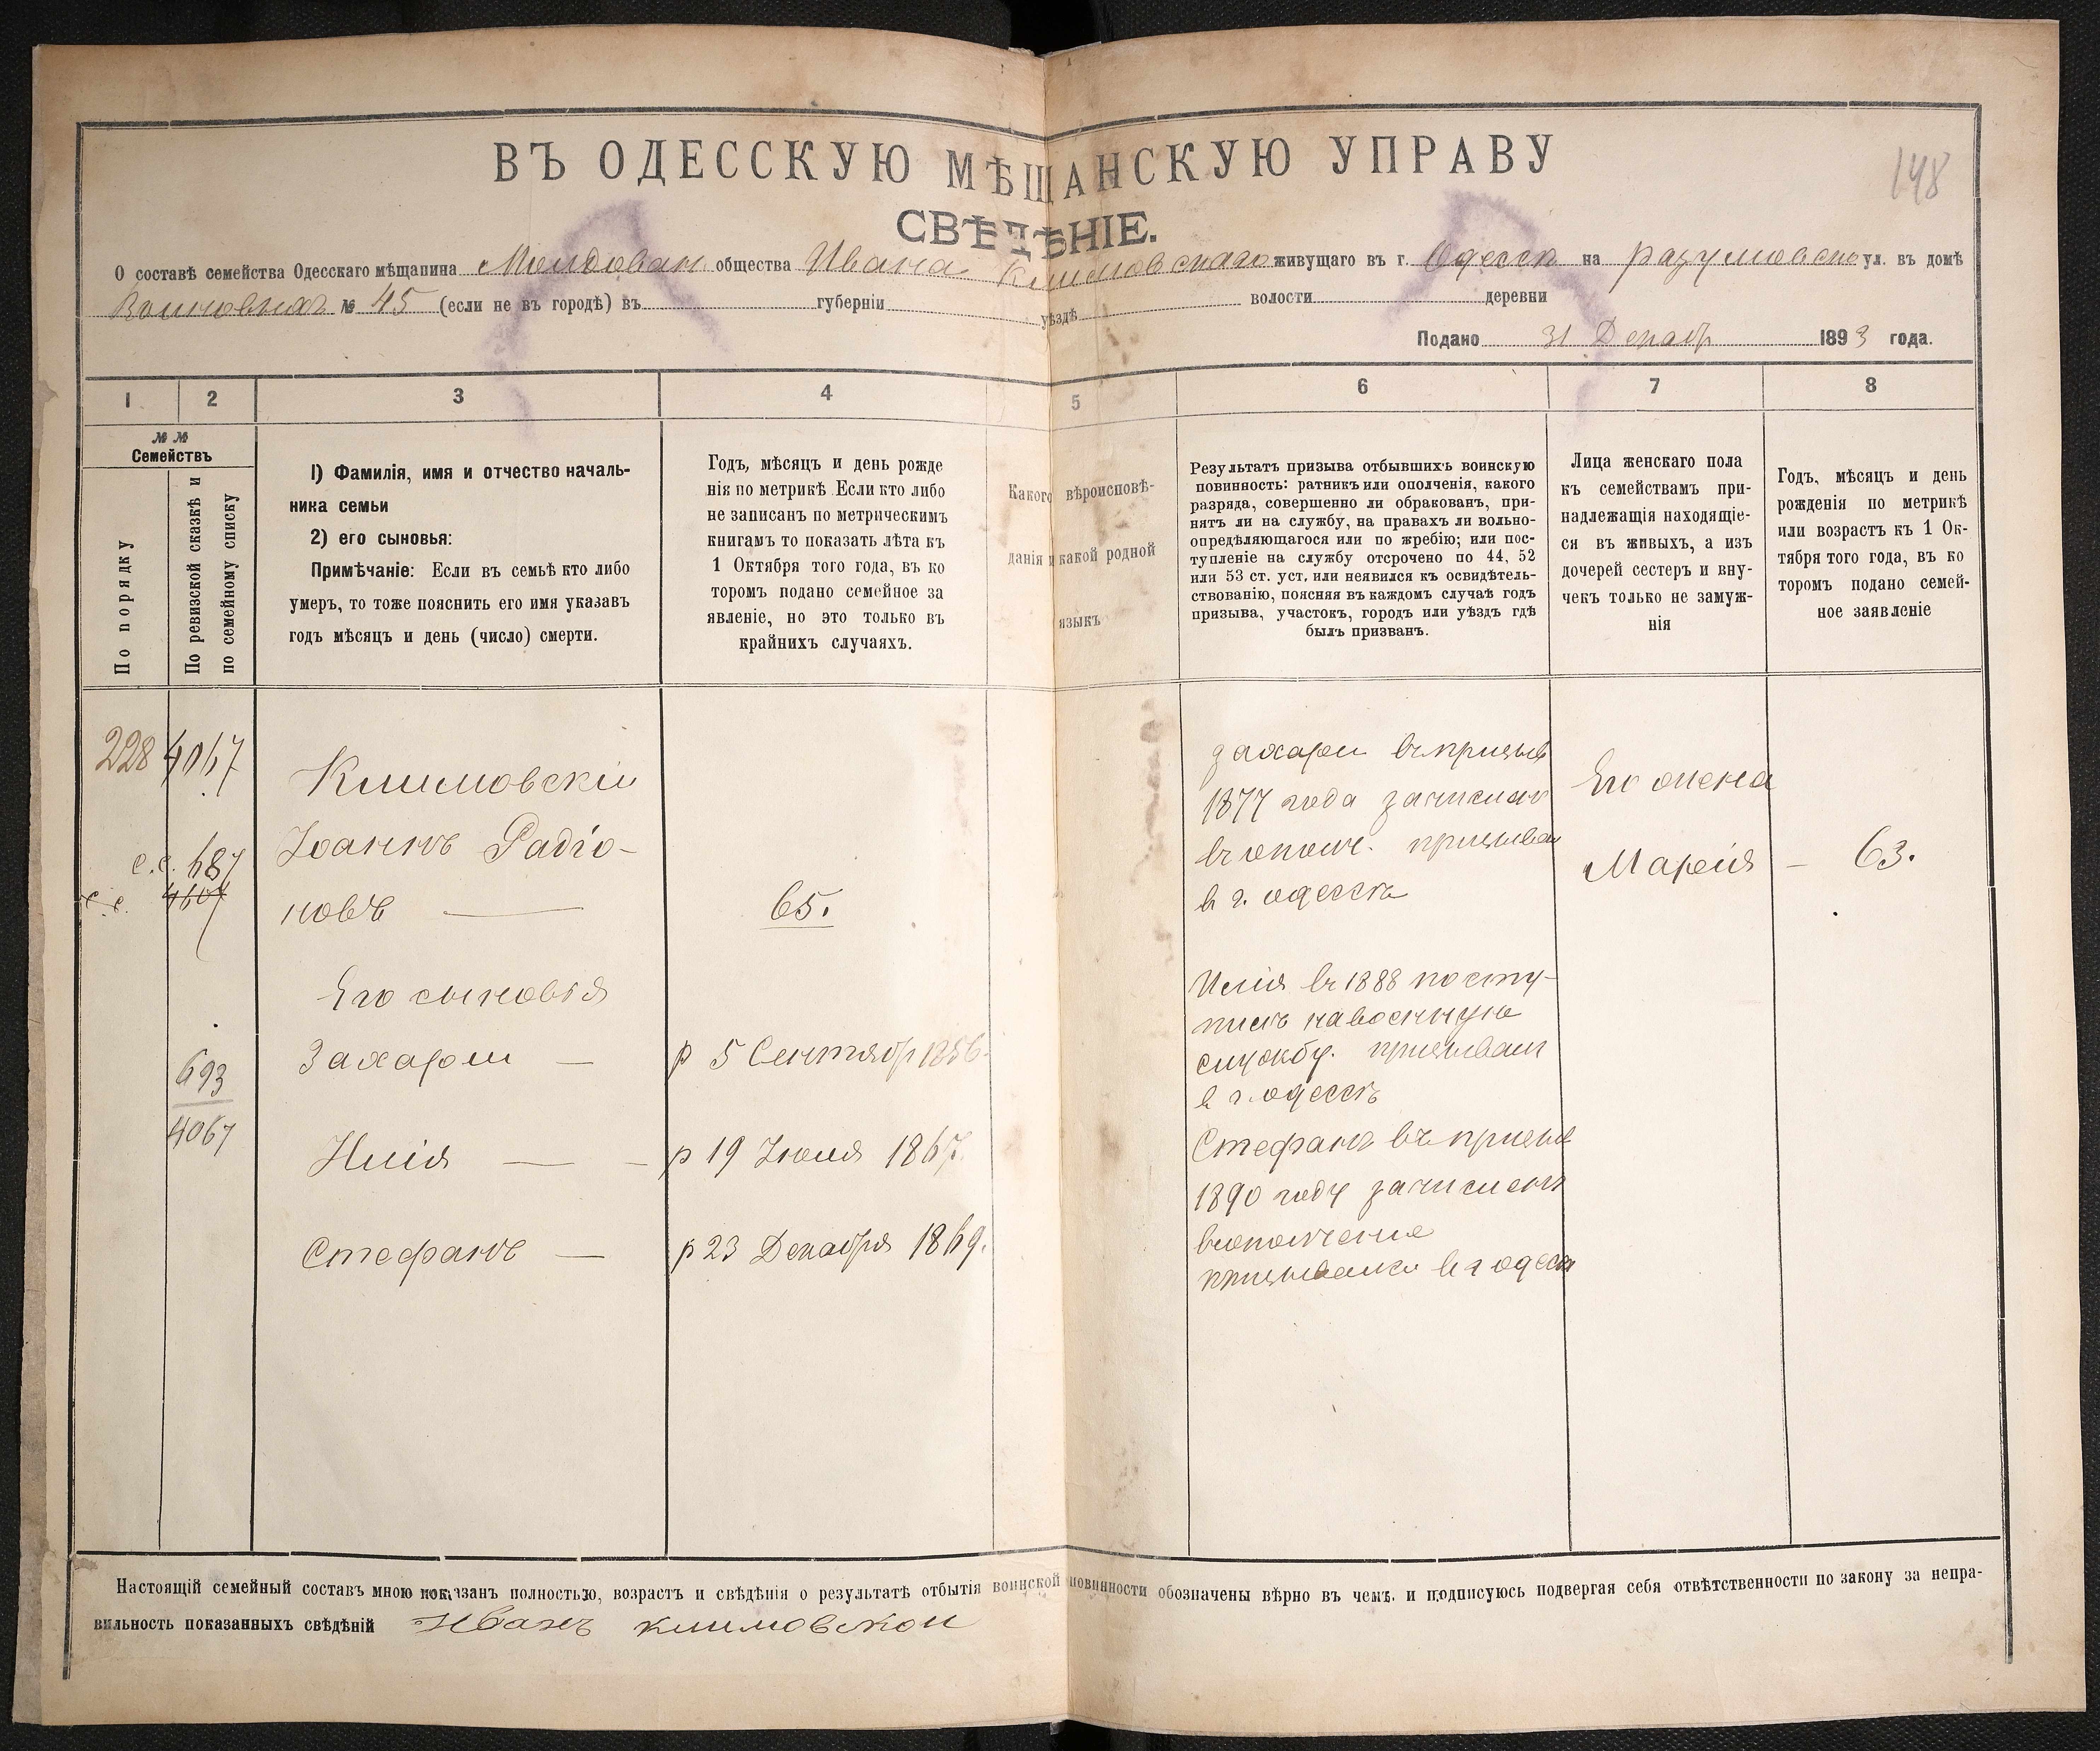 148
ВЪ ОДЕССКУЮ МѢЩАНСКУЮ УПРАВУ
СВѢДѢНІЕ.
О составѣ семейства Одесскаго мѣщанина Молдован общества Ивана Климовскаго живущаго въ г. Одессѣ на разумовско ул. въ домѣ
№ 45 (если не въ городѣ) въ губерніи уѣздѣ волости деревни
Подано 31 Декабр 1893 года.
1 2 3 4 5 6 7 8
№№
Семействъ
По порядку
По ревизской сказкѣ и
по семейному списку
1) Фамилія, имя и отчество началь-
ника семьи
2) его сыновья:
Примѣчаніе: Если въ семьѣ кто либо
умеръ, то тоже пояснить его имя указавъ
годъ мѣсяцъ и день (число) смерти.
Годъ, мѣсяцъ и день рожде
нія по метрикѣ Если кто либо
не записанъ по метрическимъ
книгамъ то показать лѣта къ
1 Октября того года, въ ко
торомъ подано семейное за
явленіе, но это только въ
крайнихъ случаяхъ.
Какого вѣроисповѣ-
данія и какой родной
языкъ
Результатъ призыва отбывшихъ воинскую
повинность: ратникъ или ополченія, какого
разряда, совершенно ли обракованъ, при-
нятъ ли на службу, на правахъ ли вольно-
опредѣляющагося или по жребію; или пос-
тупленіе на службу отсрочено по 44, 52
или 53 ст. уст. или неявился къ освидѣтель-
ствованію, поясняя въ каждомъ случаѣ годъ
призыва, участокъ, городъ или уѣздъ гдѣ
былъ призванъ.
Лица женскаго пола
къ семействамъ при-
надлежащія находящіе-
ся въ живыхъ, а изъ
дочерей сестеръ и вну-
чекъ только не замуж-
нія
Годъ, мѣсяцъ и день
рожденія по метрикѣ
или возрастъ къ 1 Ок-
тября того года, въ ко
торомъ подано семей-
ное заявленіе
228 4067
с.с. 687
с.с. 4607
693
4067
Климовскій
Іоаннъ Радіо-
новъ —
Его сыновья
Захарии —
Илія — —
Стефанъ —
65.
р 5 Сентябр 1856.
р 19 Іюля 1867.
р 23 Декабря 1869.
захари въ призыв
1877 года зачислен
въ ополч. призыван
в г. одессѣ
Илія в 1888 посту-
пилъ на военную
службу. призыван
в г. одессѣ
Стефанъ въ призыв
1890 году зачисленъ
в ополчение
призывался в г одесѣ
Его жена
Марія — 63.
Настоящій семейный составъ мною показанъ полностью, возрастъ и свѣдѣнія о результатѣ отбытія воинской повинности обозначены вѣрно въ чемъ. и подписуюсь подвергая себя отвѣтственности по закону за непра-
вильность показанныхъ свѣдѣній Иванъ климовской